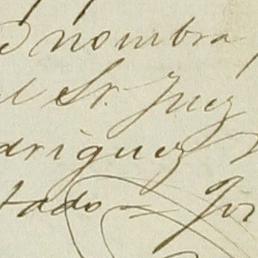 nombra
el Sr. Juez
driguez
tado =